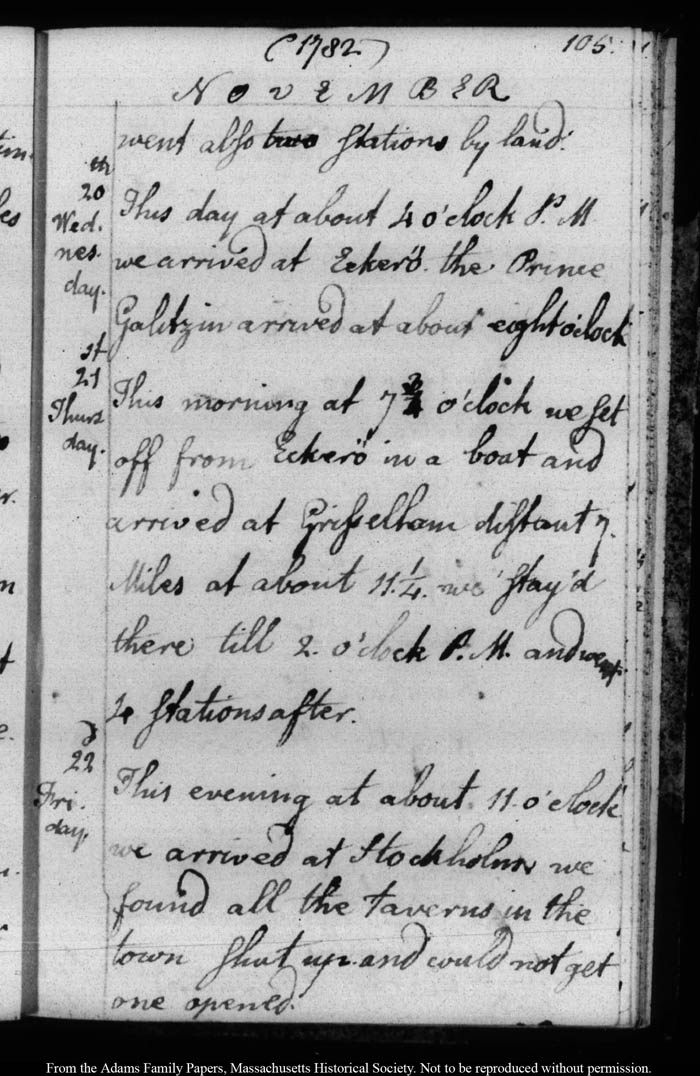 (1782) 105.
NOVEMBER
went also two stations by land.
20th Wednesday.
This day at about 4 o'clock P.M
we arrived at Eckerö. the Prince
Galitzin arrived at about eight o'clock
21st Thursday.
This morning at 7 3/4 o'clock we set
off from Eckerö in a boat and
arrived at Grisselham distant 7.
Miles at about 11.1/4. we stay'd
there till 2. o'clock P.M. and went
4 stations after.
22d Friday.
This evening at about 11 o'clock
we arrived at Stockholm we
found all the taverns in the
town shut up. and could not get
one opened.
From the Adams Family Papers, Massachusetts Historical Society. Not to be reproduced without permission.